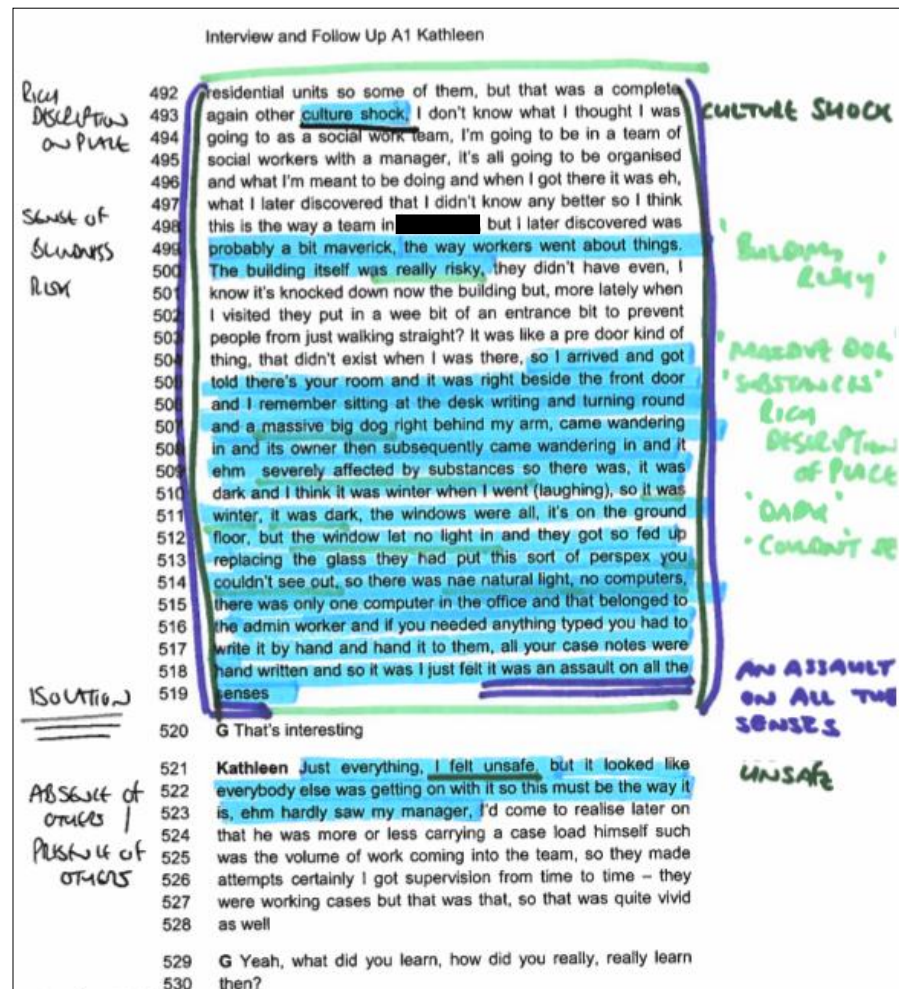 Interview and Follow Up A1 Kathleen
RICH
DESCRIPTION
ON PLACE
SENSE OF
RISK
ISOLATION
ABSENCE OF
OTHERS /
PRESENCE OF
OTHERS
492 residential units so some of them, but that was a complete
493 again other culture shock, I don't know what I thought I was
494 going to as a social work team, I'm going to be in a team of
495 social workers with a manager, it's all going to be organised
496 and what I'm meant to be doing and when I got there it was eh,
497 what I later discovered that I didn't know any better so I think
498 this is the way a team in but I later discovered was
499 probably a bit maverick, the way workers went about things.
500 The building itself was really risky, they didn't have even, I
501 know it's knocked down now the building but, more lately when
502 I visited they put in a wee bit of an entrance bit to prevent
503 people from just walking straight? It was like a pre door kind of
504 thing, that didn't exist when I was there, so I arrived and got
505 told there's your room and it was right beside the front door
506 and I remember sitting at the desk writing and turning round
507 and a massive big dog right behind my arm, came wandering
508 in and its owner then subsequently came wandering in and it
509 ehm severely affected by substances so there was, it was
510 dark and I think it was winter when I went (laughing), so it was
511 winter, it was dark, the windows were all, it's on the ground
512 floor, but the window let no light in and they got so fed up
513 replacing the glass they had put this sort of perspex you
514 couldn't see out, so there was nae natural light, no computers,
515 there was only one computer in the office and that belonged to
516 the admin worker and if you needed anything typed you had to
517 write it by hand and hand it to them, all your case notes were
518 hand written and so it was I just felt it was an assault on all the
519 senses
520 G That's interesting
521 Kathleen Just everything, I felt unsafe, but it looked like
522 everybody else was getting on with it so this must be the way it
523 is, ehm hardly saw my manager, I'd come to realise later on
524 that he was more or less carrying a case load himself such
525 was the volume of work coming into the team, so they made
526 attempts certainly I got supervision from time to time – they
527 were working cases but that was that, so that was quite vivid
528 as well
529 G Yeah, what did you learn, how did you really, really learn
530 then?
CULTURE SHOCK
'BUILDING
RISKY'
'MASSIVE DOG'
'SUBSTANCES'
RICH
DESCRIPTION
OF PLACE
'DARK'
'COULDN'T SE
AN ASSAULT
ON ALL THE
SENSES
UNSAFE